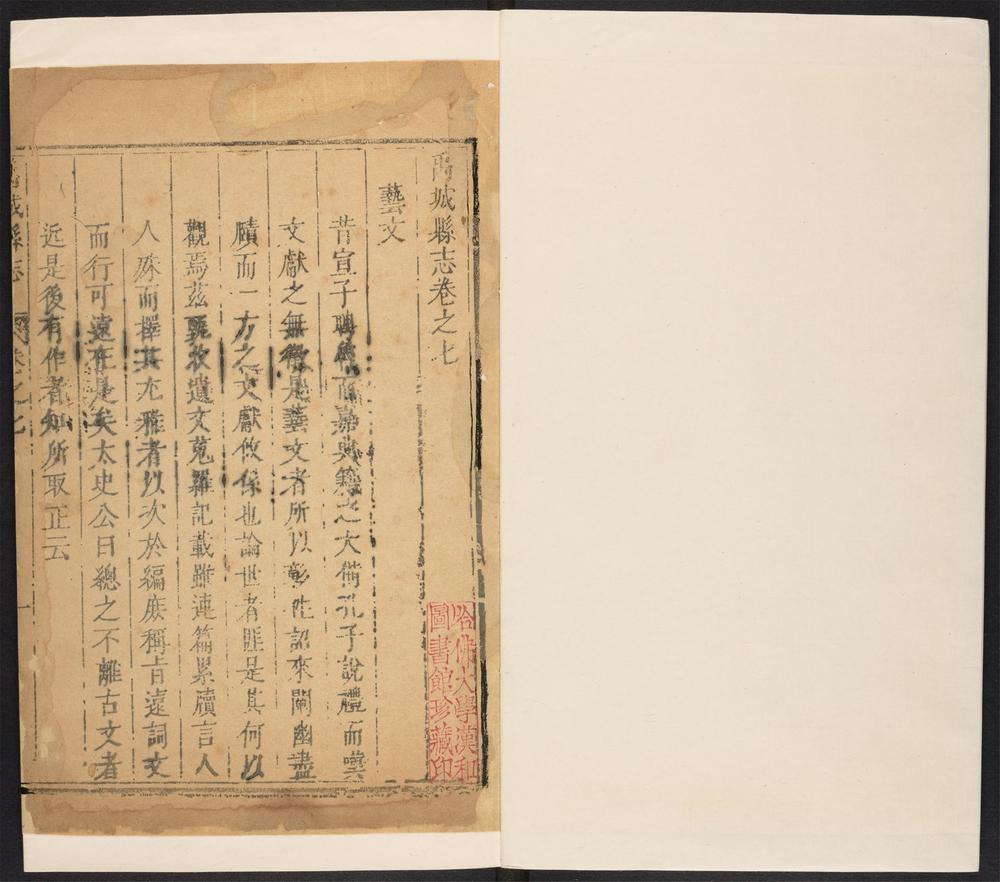 禹城縣志卷之七
藝文
昔宣子聘魯而嘉典籍之大備孔子說禮而嘆
文獻之無徵是藝文者所以彰往詔來闡幽盡
賾而一方之文獻攸係也論世者匪是其何以
觀焉茲裒收遺文蒐羅記載雖連篇累牘言人
人殊而擇其尤雅者以次於編庶稱旨遠詞文
而行可遠在是矣太史公曰總之不離古文者
近是後有作者知所取正云
禹城縣志 卷之七 一
哈佛大學漢和
圖書館珍藏印